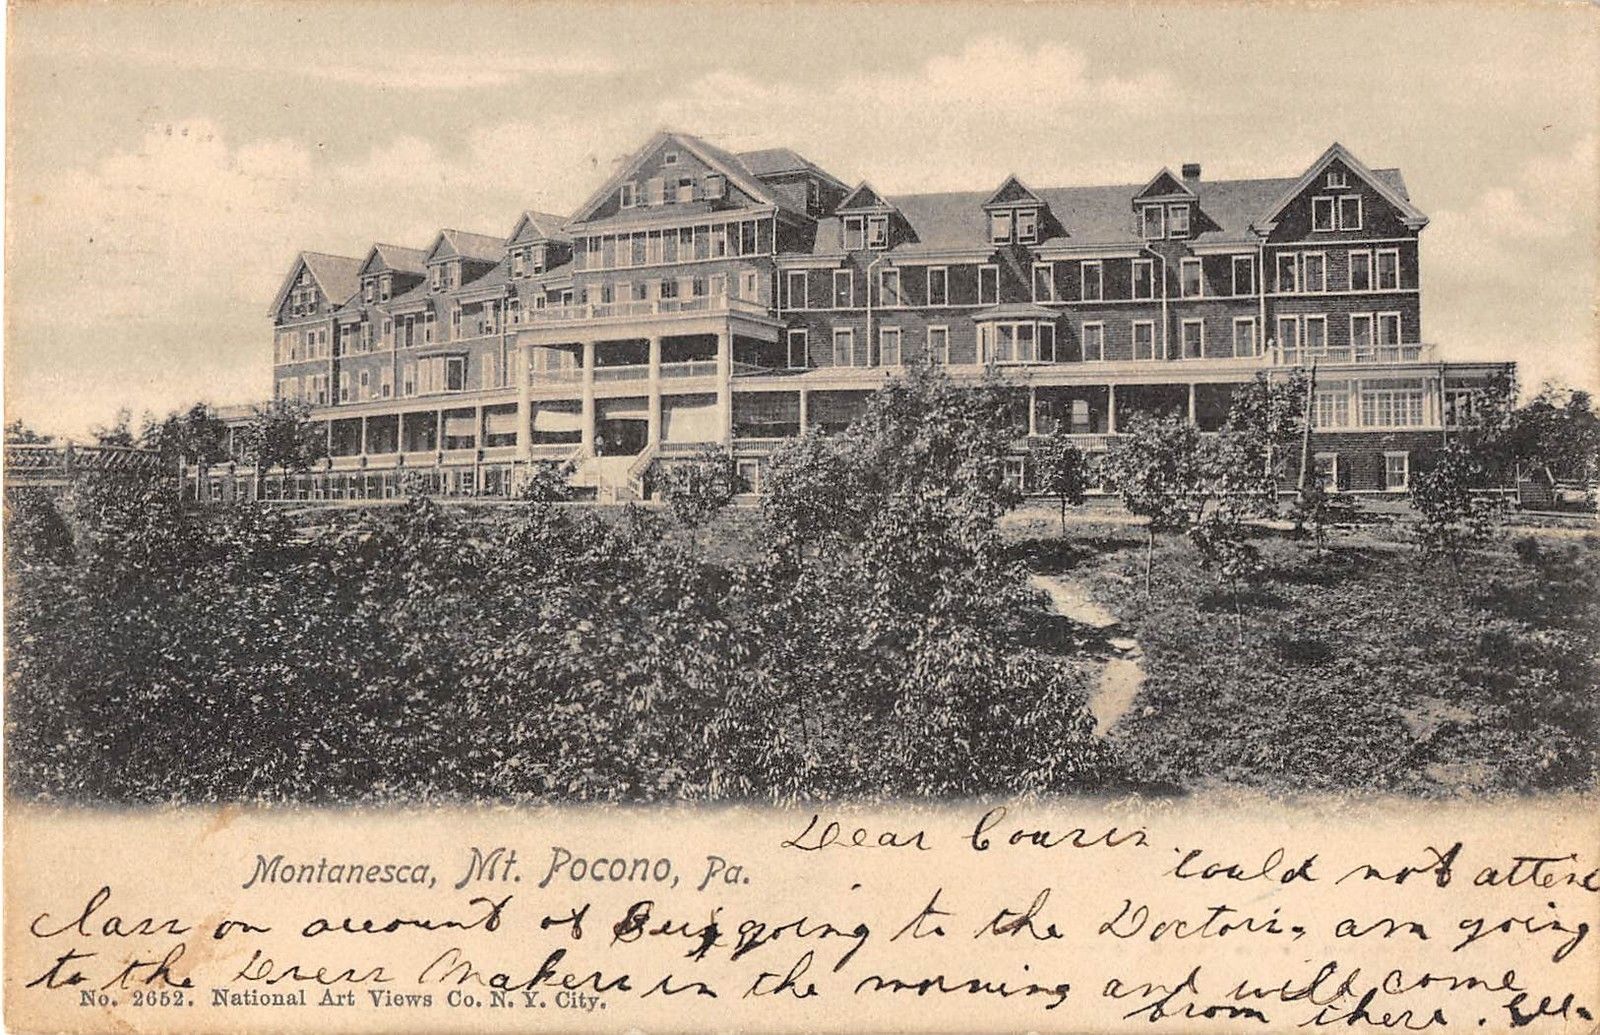 Dear Cousin
Montanesca, Mt. Pocono, Pa.
could not attend
class on account of going to the Doctors, am going
to the Dress Makers in the morning and will come
from there.
No. 2652. National Art Views Co. N. Y. City.